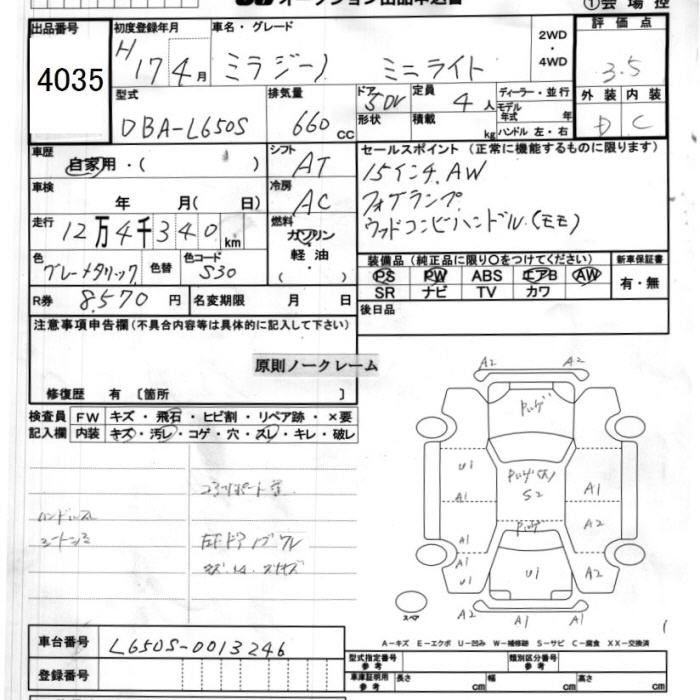 オークション出品申込書 ①会場控
出品番号 初度登録年月 車名・グレード 2WD・4WD 評価点
4035 H 17年4月 ミラジーノ ミニライト 3.5
型式 排気量 ドア 5DV 定員 4人 ディーラー・並行 外装 内装
DBA-L650S 660cc 形状 積載 kg モデル年式 年 D C
ハンドル 左・右
車歴 自家用・( ) シフト AT セールスポイント(正常に機能するものに限ります)
車検 年 月( 日) 冷房 AC 15インチAW
走行 12万4千340km 燃料 ガソリン フォグランプ
軽油・( ) ウッドコンビハンドル(モモ)
色 グレーメタリック 色替 色コード S30 装備品(純正品に限り○をつけてください) 新車保証書
PS PW ABS エアB AW 有・無
SR ナビ TV カワ
R券 8,570円 名変期限 月 日 後日品
注意事項申告欄(不具合内容等は具体的に記入して下さい)
原則ノークレーム
修復歴 有 [箇所 ]
検査員 FW キズ・飛石・ヒビ割・リペア跡・×要
記入欄 内装 キズ・汚レ・コゲ・穴・スレ・キレ・破レ
A2 A2
U1 A1 S2 A1 A2
A1 A1 U1 U1 A2
A2 A1 A1
スペア
A-キズ E-エクボ U-凹み W-補修跡 S-サビ C-腐食 XX-交換済
車台番号 L650S-0013246
登録番号
型式指定番号 参考 類別区分番号 参考
車庫証明用 参考 長さ cm 幅 cm 高さ cm